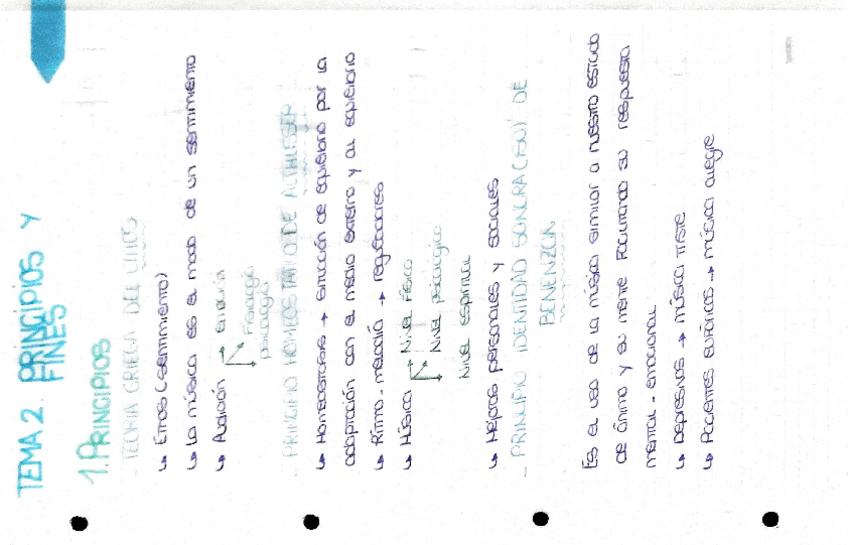 TEMA 2. PRINCIPIOS Y
FINES
1. PRINCIPIOS
- TEORIA GRIEGA DEL
↳ Ethos (sentimiento)
↳ La música es el modo de un sentimiento
↳ Audición → emoción
Fisiología
psicología
- PRINCIPIO HOMEOSTATICO DE ALTHUSSER
↳ Homeostasis → situación de equilibrio por la
adaptación con el medio externo y su equilibrio
↳ Ritmo - melodía → reguladores
↳ Música → Nivel físico
Nivel psicológico
Nivel espiritual
↳ Mejoras personales y sociales
- PRINCIPIO IDENTIDAD SONORA (ISO) DE
BENENZON
Es el uso de la música similar a nuestro estado
de ánimo y su mente facilitando su respuesta
mental - emocional
↳ Depresivos → música triste
↳ Pacientes eufóricos → música alegre